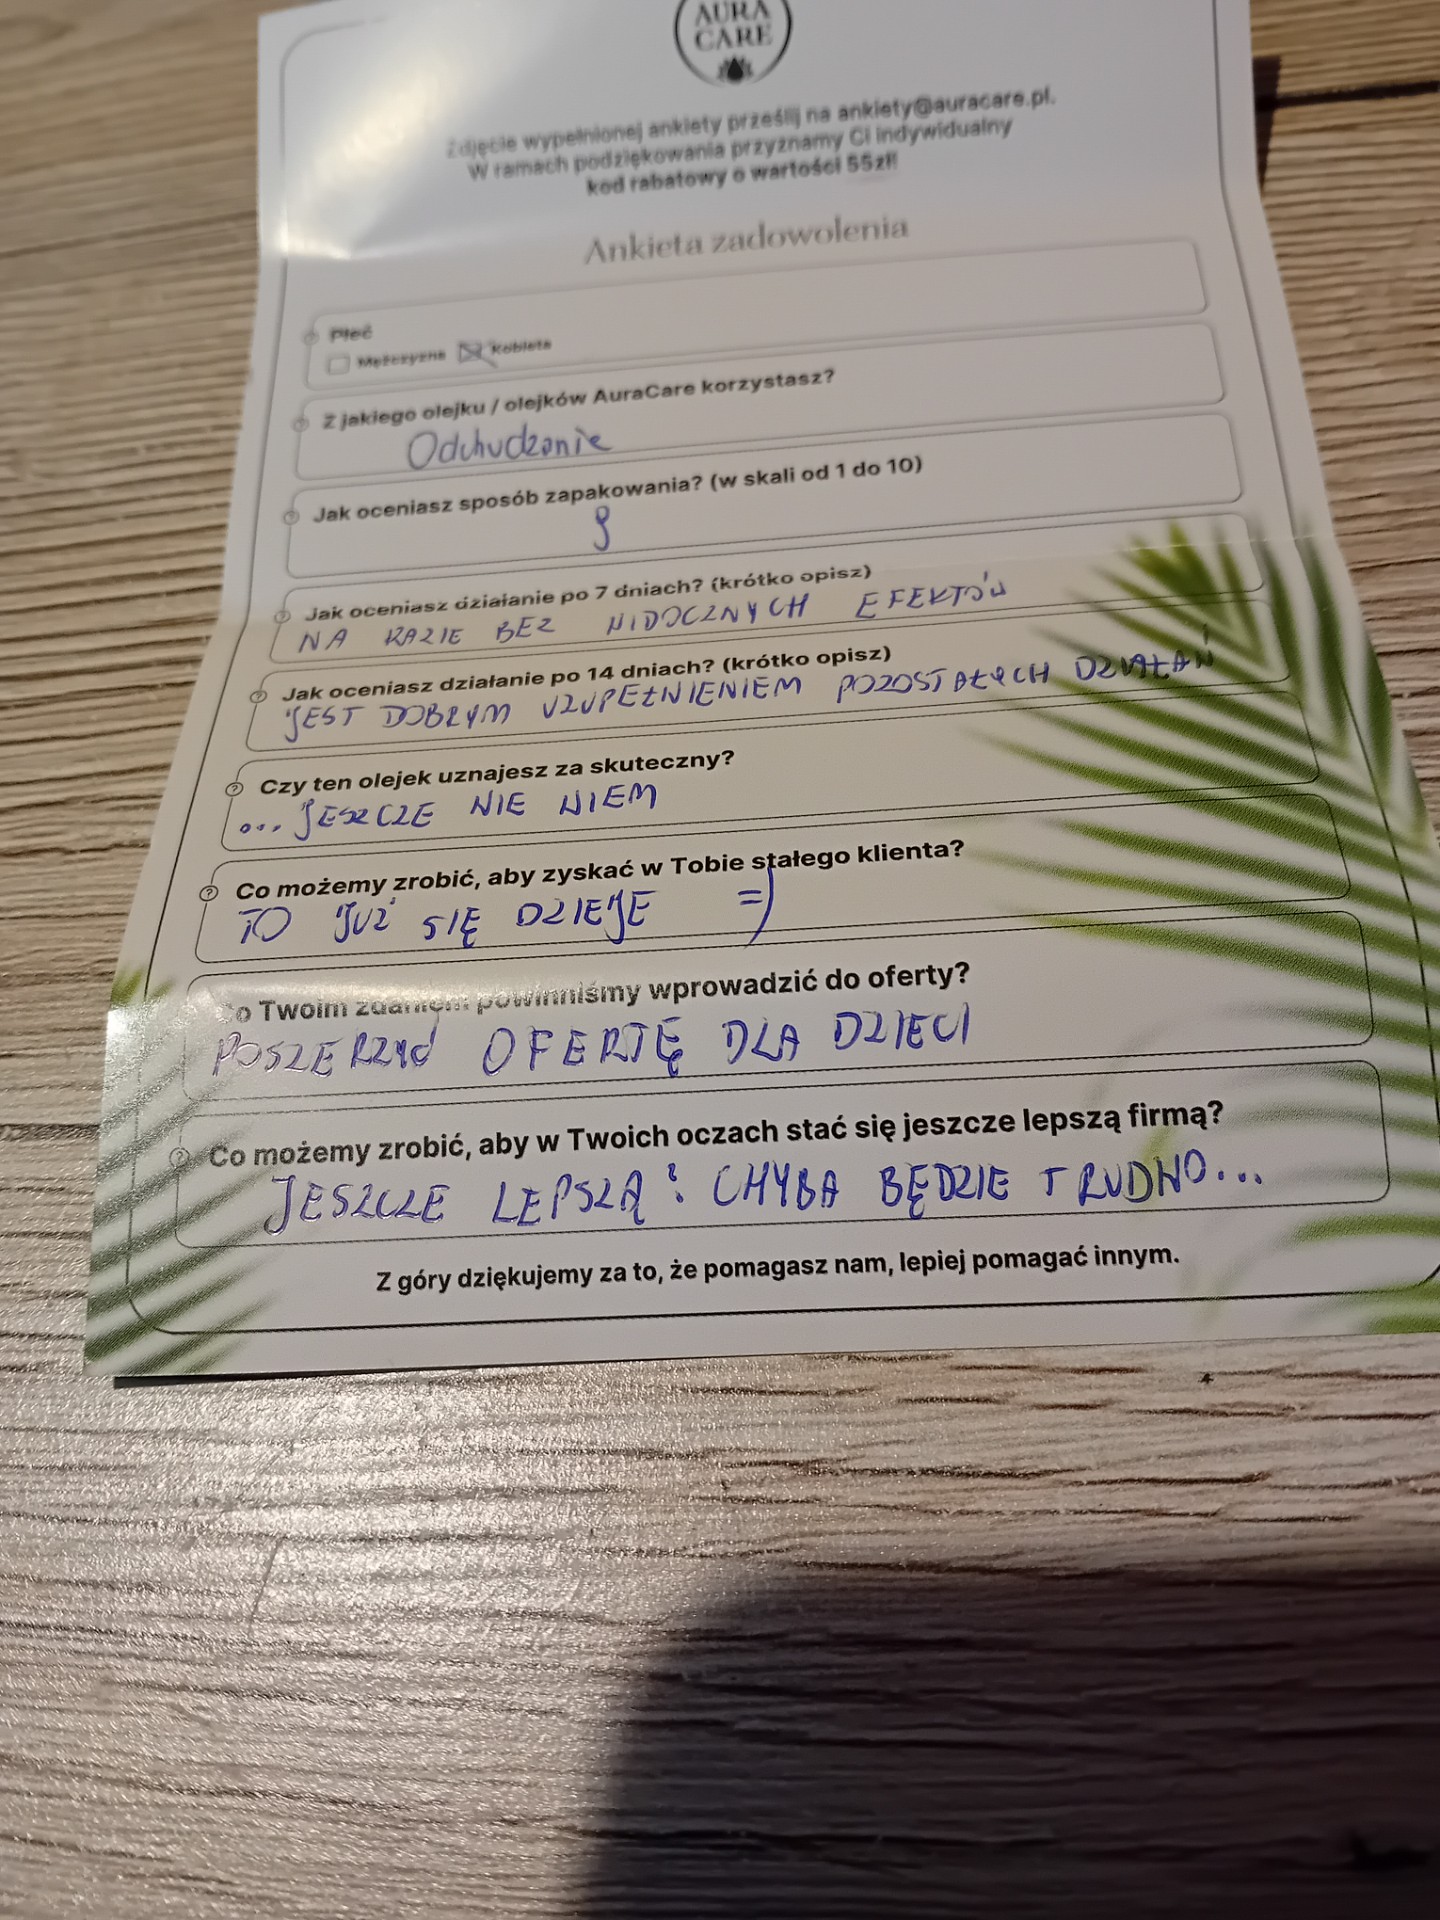 AURA
CARE
Zdjęcie wypełnionej ankiety prześlij na ankiety@auracare.pl.
W ramach podziękowania przyznamy Ci indywidualny
kod rabatowy o wartości 55zł!
Ankieta zadowolenia
Płeć
Mężczyzna Kobieta
Z jakiego olejku / olejków AuraCare korzystasz?
Odchudzanie
Jak oceniasz sposób zapakowania? (w skali od 1 do 10)
Jak oceniasz działanie po 7 dniach? (krótko opisz)
NA RAZIE BEZ WIDOCZNYCH EFEKTÓW
Jak oceniasz działanie po 14 dniach? (krótko opisz)
JEST DOBRYM UZUPEŁNIENIEM POZOSTAŁYCH DZIAŁAŃ
Czy ten olejek uznajesz za skuteczny?
... JESZCZE NIE WIEM
Co możemy zrobić, aby zyskać w Tobie stałego klienta?
TO JUŻ SIĘ DZIEJE =)
Co Twoim zdaniem powinniśmy wprowadzić do oferty?
POSZERZYĆ OFERTĘ DLA DZIECI
Co możemy zrobić, aby w Twoich oczach stać się jeszcze lepszą firmą?
JESZCZE LEPSZĄ? CHYBA BĘDZIE TRUDNO...
Z góry dziękujemy za to, że pomagasz nam, lepiej pomagać innym.